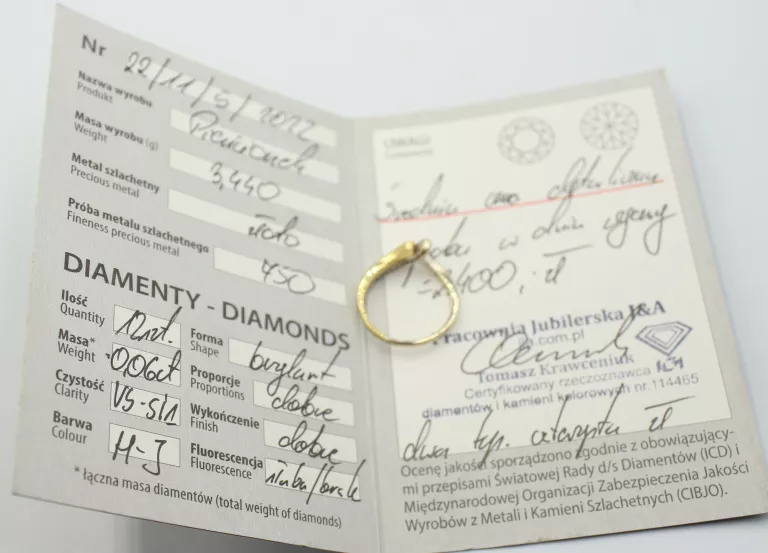 Nr 22/11/5/2022
Nazwa wyrobu
Produkt
Pierścionek
Masa wyrobu (g)
Weight
3,440
Metal szlachetny
Precious metal
złoto
Próba metalu szlachetnego
Fineness precious metal
750
DIAMENTY - DIAMONDS
Ilość
Quantity
12szt.
Masa*
Weight
~0,06ct
Czystość
Clarity
VS-SI1
Barwa
Colour
H-J
Forma
Shape
brylant
Proporcje
Proportions
dobre
Wykończenie
Finish
dobre
Fluorescencja
Fluorescence
słaba/brak
* łączna masa diamentów (total weight of diamonds)
UWAGI
Comments
Średnia cena detaliczna
w dniu wyceny
2400,- zł
Pracownia Jubilerska J&A
.com.pl
Tomasz Krawceniuk
Certyfikowany rzeczoznawca
diamentów i kamieni kolorowych nr.114465
dwa tys. czterysta zł
Ocenę jakości sporządzono zgodnie z obowiązujący-
mi przepisami Światowej Rady d/s Diamentów (ICD) i
Międzynarodowej Organizacji Zabezpieczenia Jakości
Wyrobów z Metali i Kamieni Szlachetnych (CIBJO).